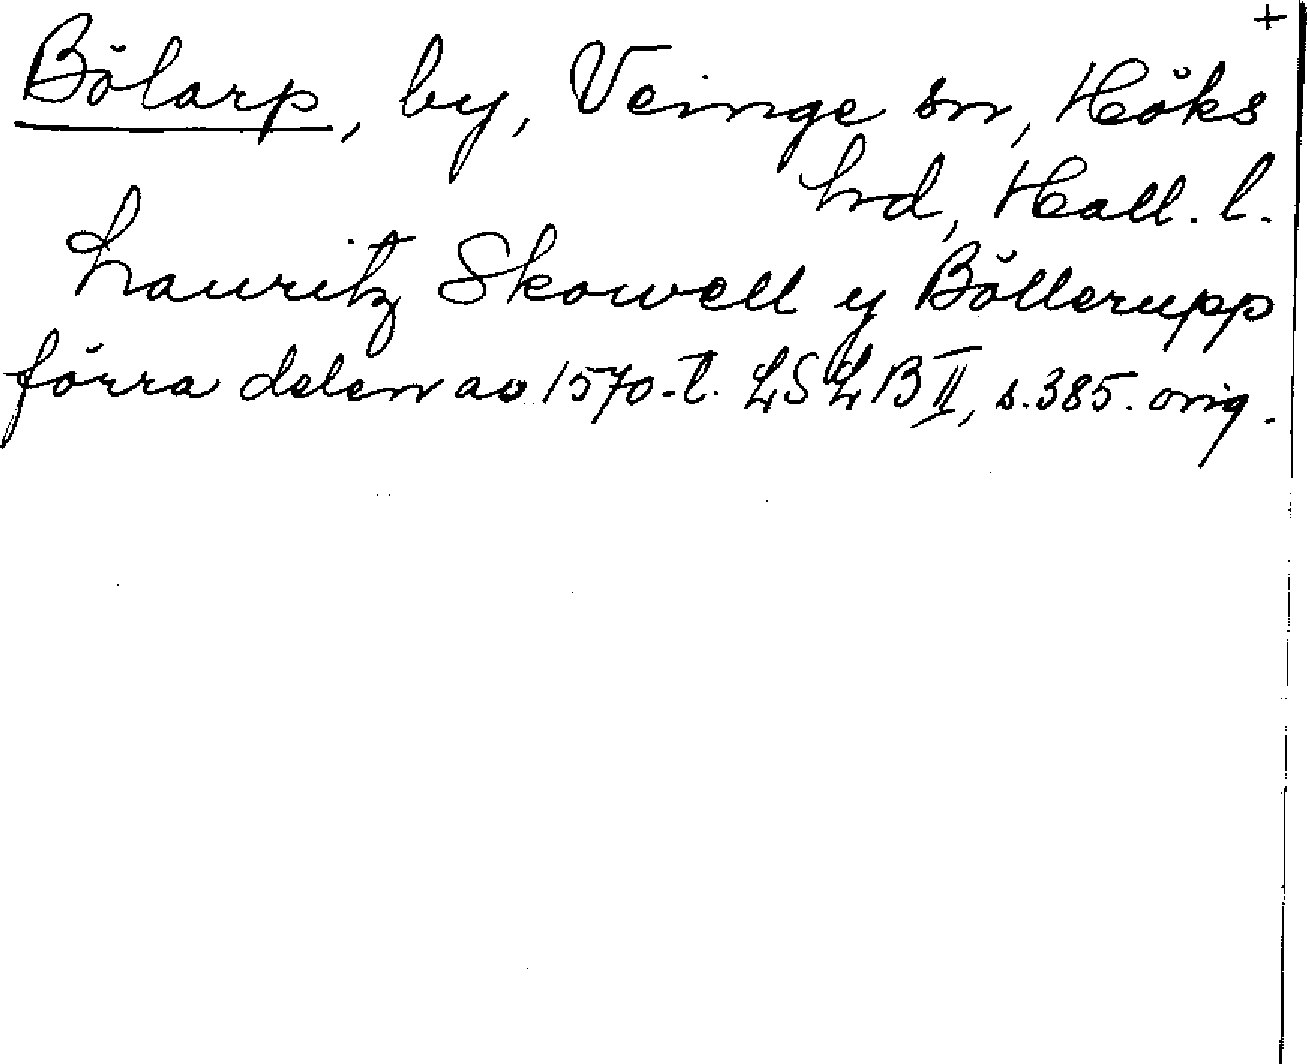 +
Bölarp, by, Veinge sn, Höks
hd, Hall. l.
Lauritz Skowell y Böllerupp
förra delen av 1570-t. LSLB II, s. 385. orig.